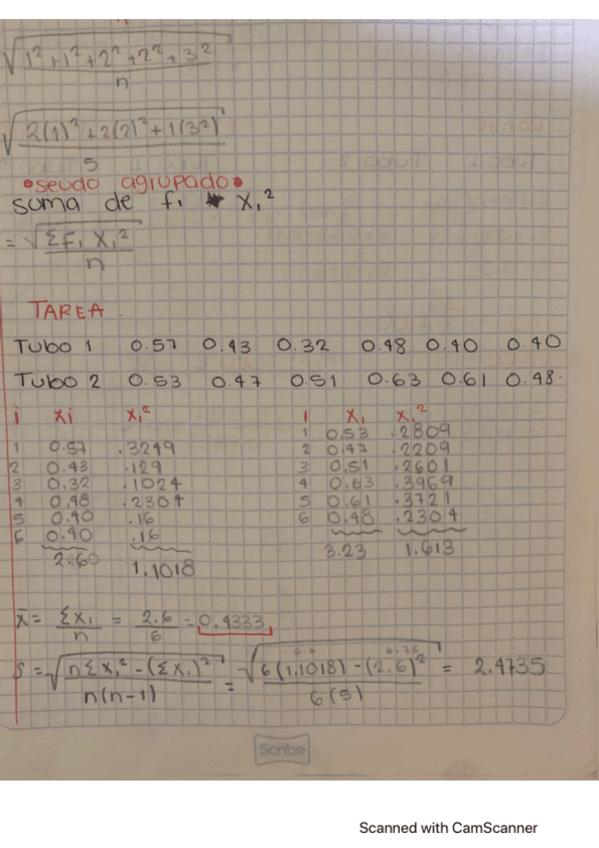 √1²+1²+2²+2²+3²
n
√2(1)²+2(2)²+1(3²)
5
•seudo agrupado•
suma de f₁ * X₁²
= √Σf₁ X₁²
n
TAREA
Tubo 1 0.57 0.43 0.32 0.48 0.40 0.40
Tubo 2 0.53 0.47 0.51 0.63 0.61 0.48
i xi x₁²
1 0.57 .3249
2 0.43 .129
3 0.32 .1024
4 0,48 .2304
5 0.40 .16
6 0.40 .16
2.60 1.1018
i X₁ X₁²
1 0.53 .2809
2 0.47 .2209
3 0,51 .2601
4 0.63 .3969
5 0.61 .3721
6 0,48 .2304
3.23 1.613
x̄ = Σx₁ = 2.6 = 0.4333
n 6
S = √nΣx₁² - (Σx₁)² = √6(1.1018) - (2.6)² = 2.4735
n(n-1) 6(5)
Scribe
Scanned with CamScanner